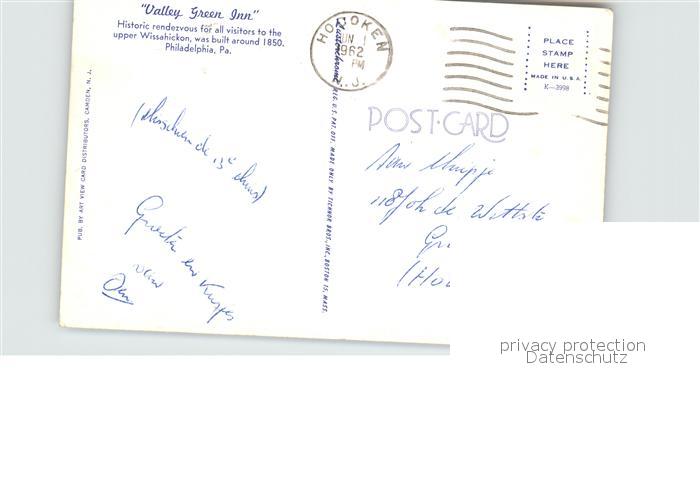 "Valley Green Inn"
Historic rendezvous for all visitors to the
upper Wissahickon, was built around 1850.
Philadelphia, Pa.
PUB. BY ART VIEW CARD DISTRIBUTORS, CAMDEN, N. J.
de 13e
Groeten en Kusjes
van
REG. U.S. PAT. OFF. MADE ONLY BY TICHNOR BROS., INC., BOSTON 15, MASS.
HOBOKEN
JUN 1
1962
PM
N.J.
PLACE
STAMP
HERE
MADE IN U.S.A.
K—3998
POST-CARD
118 Joh de Wittstr
privacy protection
Datenschutz